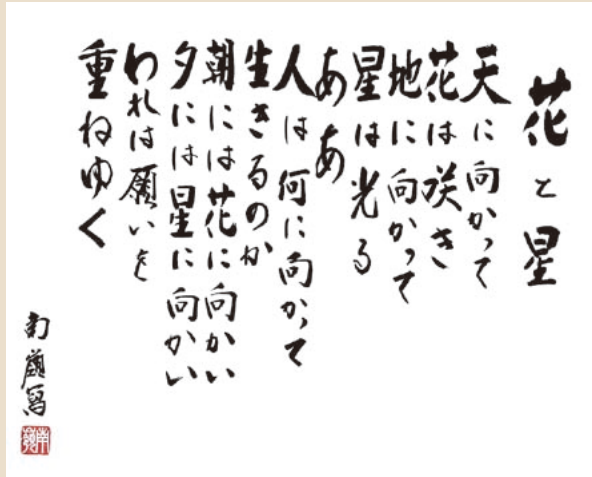 花と星
天に向かって
花は咲き
地に向かって
星は光る
ああ
人は何に向かって
生きるのか
朝には花に向かい
夕には星に向かい
われは願いを
重ねゆく
南嶺写
南嶺